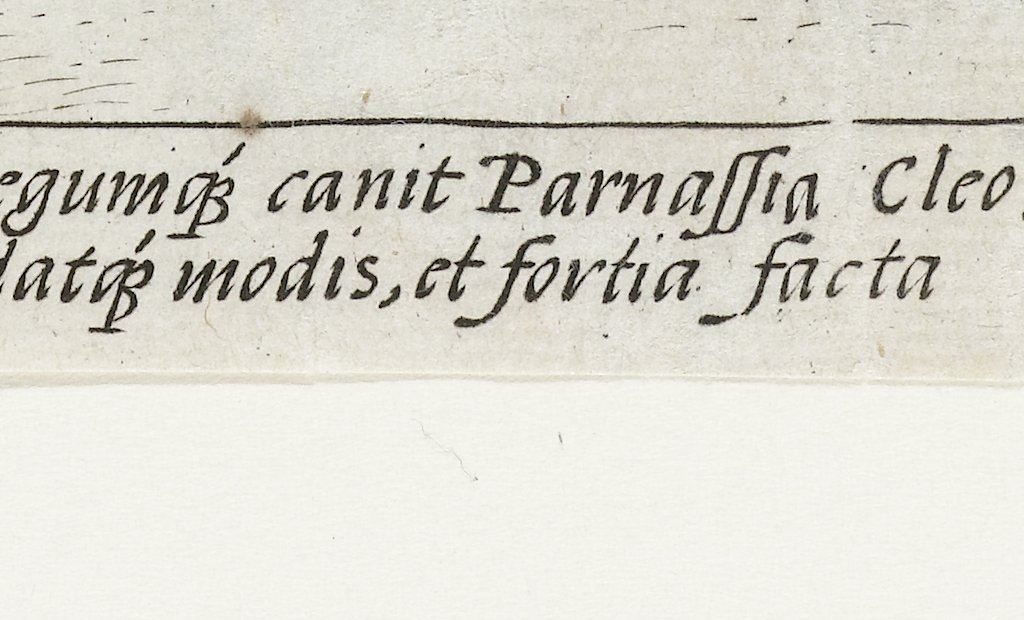 egumq́ꝫ canit Parnaſſia Cleo,
datq́ꝫ modis, et fortia facta